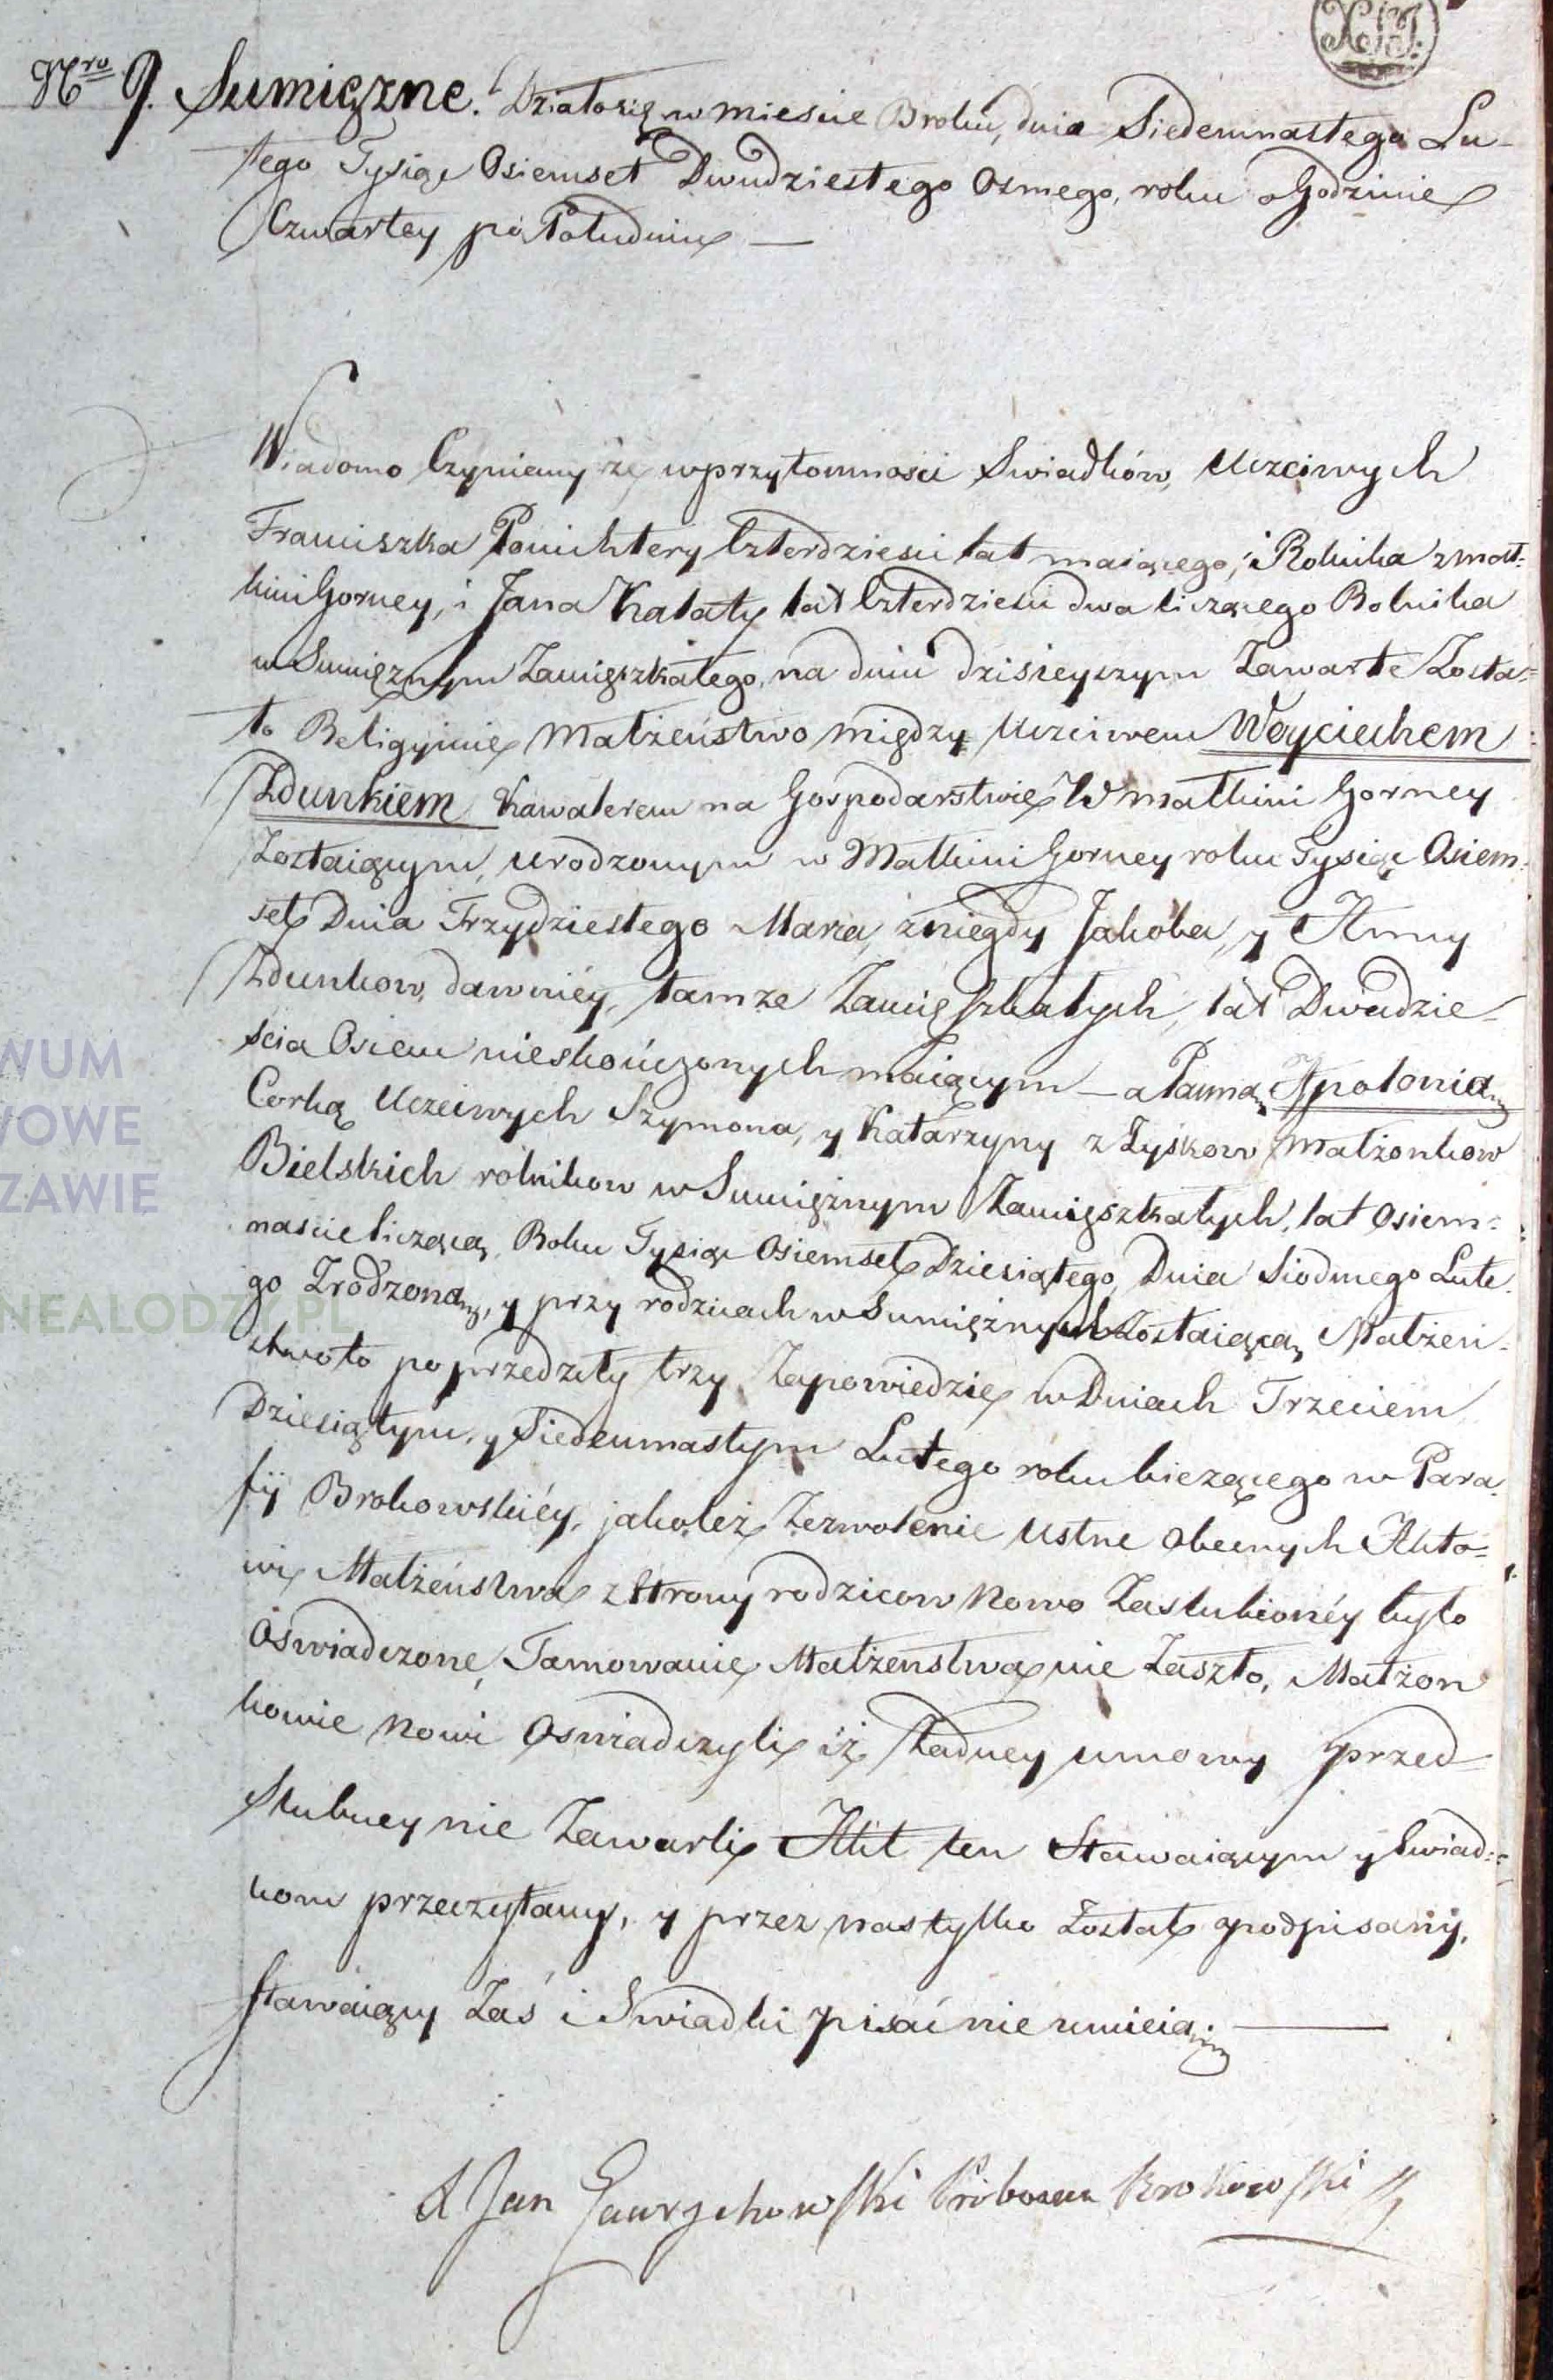 Nro 9. Sumięzne. Działosię w miescie Broku, dnia Siedemnastego Lu-
tego Tysiąc Osiemset Dwudziestego Osmego, roku o Godzinie
Czwartey po Południu —
Wiadomo Czyniemy że w przytomnosci Swiadków, Uczciwych
Franciszka Ponichtery Czterdziesci lat maiącego, i Rolnika z Mał-
kini Gorney, i Jana Kałaty lat Czterdziesci dwa liczącego Rolnika
w Sumięznym Zamięszkałego, na dniu dzisieyszym Zawarte Zosta-
ło Religijnie Małżeństwo między Uczciwem Woyciechem
Zdunkiem Kawalerem na Gospodarstwie W Małkini Gorney
Zostaiącym, urodzonym w Małkini Gorney roku Tysiąc Osiem-
set Dnia Trzydziestego Marca, z niegdy Jakóba, y Anny
Zdunkow, dawniéy, tamze Zamięszkałych, lat Dwadzie-
ścia Osiem nieskończonych maiącym — a Panną Apolonią
Corką Uczciwych Szymona, y Katarzyny z Łyskow Małżonkow
Bielskich rolnikow w Sumiężnym Zamięszkałych, lat Osiem-
nascie liczącą, Roku Tysiąc Osiemset Dziesiątego, Dnia Siodmego Lute-
go Zrodzoną, y przy rodzicach w Sumiężnym Zostaiącą, Małżeń-
stwo to poprzedziły trzy Zapowiedzie w Dniach Trzeciem
Dziesiątym, y Siedemnastym Lutego roku bieżącego w Para-
fij Brokowskiéy, jakoteż Zezwolenie Ustne obecnych Akto-
wi Małżeństwa z strony rodzicow Nowo Zaslubionéy było
Oświadczone, Tamowanie Małżenstwa nie Zaszło, Małżon
kowie Nowi Oswiadczyli iż Żadney umowy przed-
slubney nie Zawarli Akt ten Stawaiącym y Swiad-
kom przeczytany, y przez nas tylko Został podpisany,
Stawaiący Zaś i Swiadki pisać nie umieią. —
X Jan Gawrychowski Proboszcz Brokowski
WUM
WOWE
ZAWIE
NEALODZY.PL